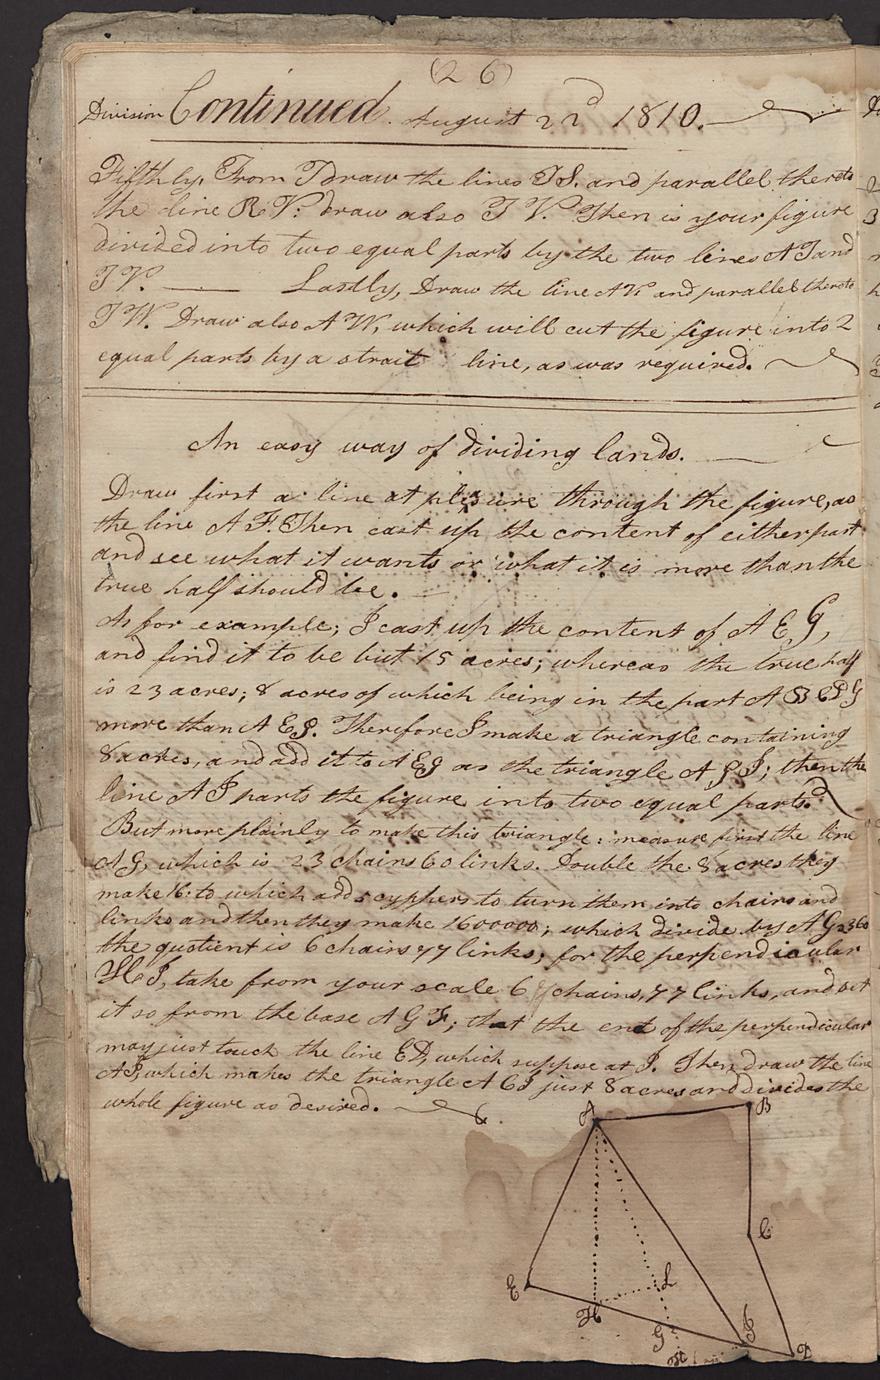 (26)
Division Continued. August 22d 1810.
Fifthly, From T draw the lines TS. and parallel thereto
the line RV: draw also TV. Then is your figure
divided into two equal parts by the two lines AT and
TV. Lastly, Draw the line AV: and parallel thereto
TW. Draw also AW, which will cut the figure into 2
equal parts by a strait line, as was required.
An easy way of dividing lands.
Draw first a line at plesure through the figure, as
the line AF. Then cast up the content of either part
and see what it wants or what it is more than the
true half should be.
As for example; I cast up the content of AEG,
and find it to be but 15 acres; whereas the true half
is 23 acres; 8 acres of which being in the part ABCDG
more than AEG. Therefore I make a triangle containing
8 acres, and add it to AEG as the triangle AGI; then the
line AI parts the figure into two equal parts.
But more plainly to make this triangle: measure first the line
AG, which is 23 chains 60 links. Double the 8 acres they
make 16: to which add 5 cyphers to turn them into chains and
links and then they make 1600000; which divide by AG 2360
the quotient is 6 chains 77 links; for the perpendicular
HI, take from your scale 6 chains, 77 links, and set
it so from the base AGF; that the end of the perpendicular
may just touch the line ED, which suppose at I. Then draw the line
AI, which makes the triangle AGI just 8 acres and divides the
whole figure as desired.
A B
C
E L
H
G I
D